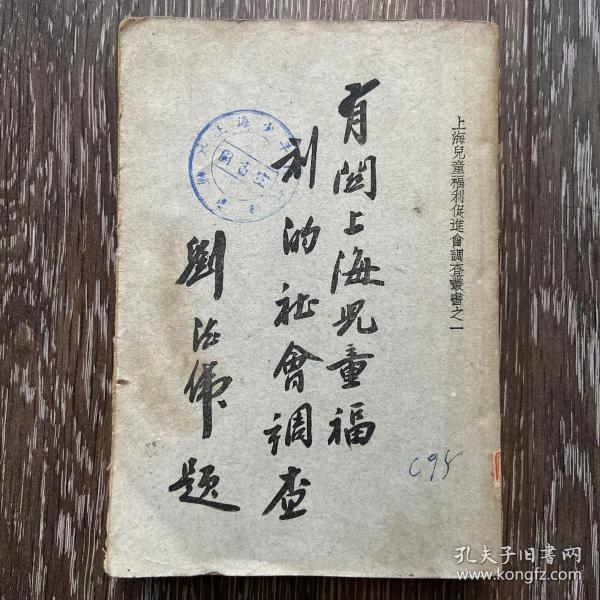 上海兒童福利促進會調查叢書之一
有関上海児童福
利的社會調查
劉德偉題
C95
孔夫子旧书网
www.kongfz.com